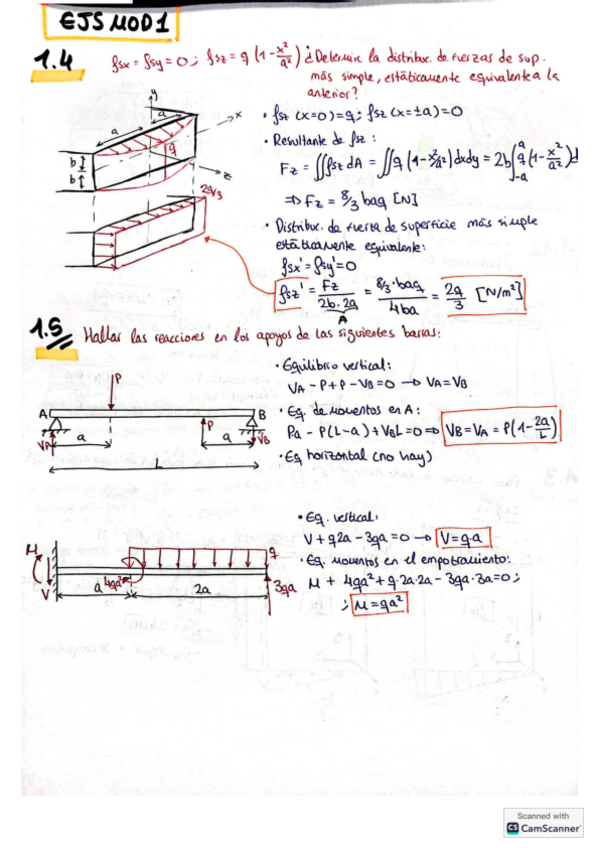 EJS MOD 1
1.4 fsx = fsy = 0 ; fsz = q (1 - x²/a²) ¿Determine la distribuc. de fuerzas de sup.
más simple, estáticamente equivalente a la
anterior?
y
a
a
x
b
b
q
z
2q/3
• fsz (x=0) = q ; fsz (x=±a) = 0
• Resultante de fsz :
Fz = ∬ fsz dA = ∬ q (1 - x²/a²) dxdy = 2b ∫ q (1 - x²/a²) d
a
-a
⇒ Fz = 8/3 baq [N]
• Distribuc. de fuerza de superficie más simple
estáticamente equivalente:
fsx' = fsy' = 0
fsz' = Fz / 2b·2a = 8/3·baq / 4ba = 2q/3 [N/m²]
A
1.5 Hallar las reacciones en los apoyos de las siguientes barras:
P
A
B
VA
a
P
a
VB
L
• Equilibrio vertical:
VA - P + P - VB = 0 → VA = VB
• Eq. de momentos en A:
Pa - P(L-a) + VBL = 0 ⇒ VB = VA = P(1 - 2a/L)
• Eq horizontal (no hay)
M
V
4qa²
a
2a
q
3qa
• Eq. vertical:
V + q2a - 3qa = 0 → V = q·a
• Eq. momentos en el empotramiento:
M + 4qa² + q·2a·2a - 3qa·3a = 0 ;
; M = qa²
Scanned with
CS CamScanner